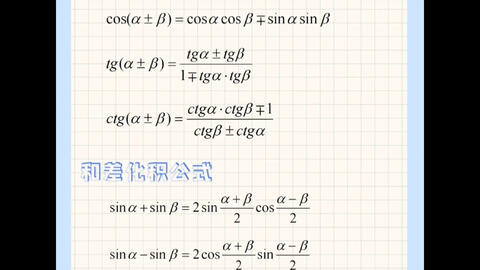 cos(α ± β) = cosα cos β ∓ sin α sin β
tg(α ± β) = \frac{tgα ± tgβ}{1 ∓ tgα · tgβ}
ctg(α ± β) = \frac{ctgα · ctgβ ∓ 1}{ctgβ ± ctgα}
和差化积公式
sin α + sin β = 2 sin \frac{α + β}{2} cos \frac{α − β}{2}
sin α − sin β = 2 cos \frac{α + β}{2} sin \frac{α − β}{2}